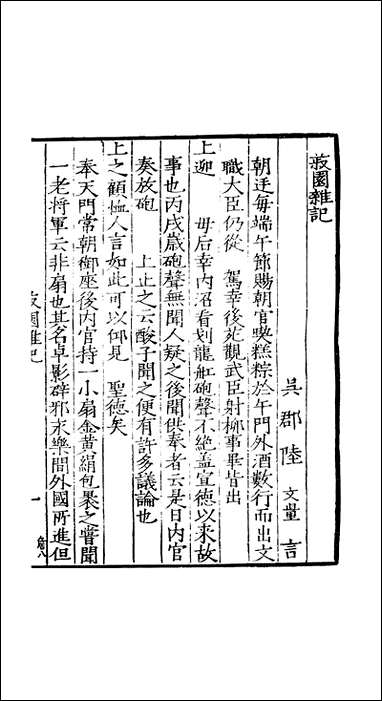 菽園雜記
吳郡陸 文量 言
朝廷每端午節賜朝官喫糕粽於午門外酒數行而出文
職大臣仍從 駕幸後苑觀武臣射柳事畢皆出
上迎 母后幸內沼看划龍舡砲聲不絕盖宣德以來故
事也丙戌歲砲聲無聞人疑之後聞供奉者云是日內官
奏放砲 上止之云酸子聞之便有許多議論也
上之顧恤人言如此可以仰見 聖德矣
奉天門常朝御座後內官持一小扇金黃絹包褁之嘗聞
一老將軍云非扇也其名卓影辟邪永樂間外國所進但
菽園雜記 一